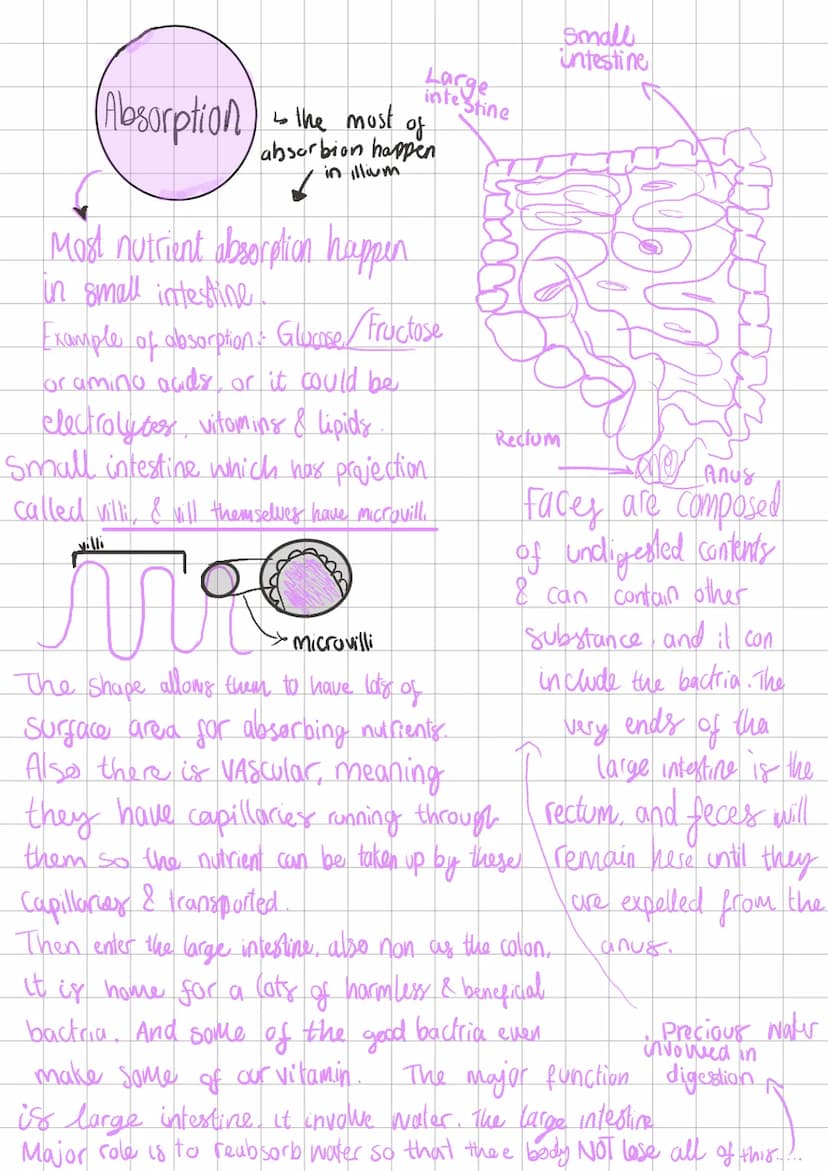 Absorption
↳ the most of
absorbion happen
in illium
Most nutrient absorption happen
in small intestine.
Example of absorption: Glucose/Fructose
or amino acids, or it could be
electrolytes, vitamins & lipids.
Small intestine which has projection
called villi, & vill themselves have microvilli
villi
microvilli
The shape allows them to have lots of
surface area for absorbing nutrients.
Also there is VAscular, meaning
they have capillaries running through
them so the nutrient can be taken up by these
Capillaries & transported.
Then enter the large intestine, also non as the colon,
It is home for a lots of harmless & beneficial
bactria. And some of the good bactria even
make some of our vitamin. The major function
is large intestine. it involve water. The large intestine
Major role is to reubsorb water so that thee body NOT lose all of this.....
Precious water
invowed in
digestion
Small
intestine
Large
intestine
Rectum
Anus
Faces are composed
of undigested contents
& can contain other
substance, and it can
include the bactria. The
very ends of tha
large intestine is the
rectum, and feces will
remain here until they
are expelled from the
anus.